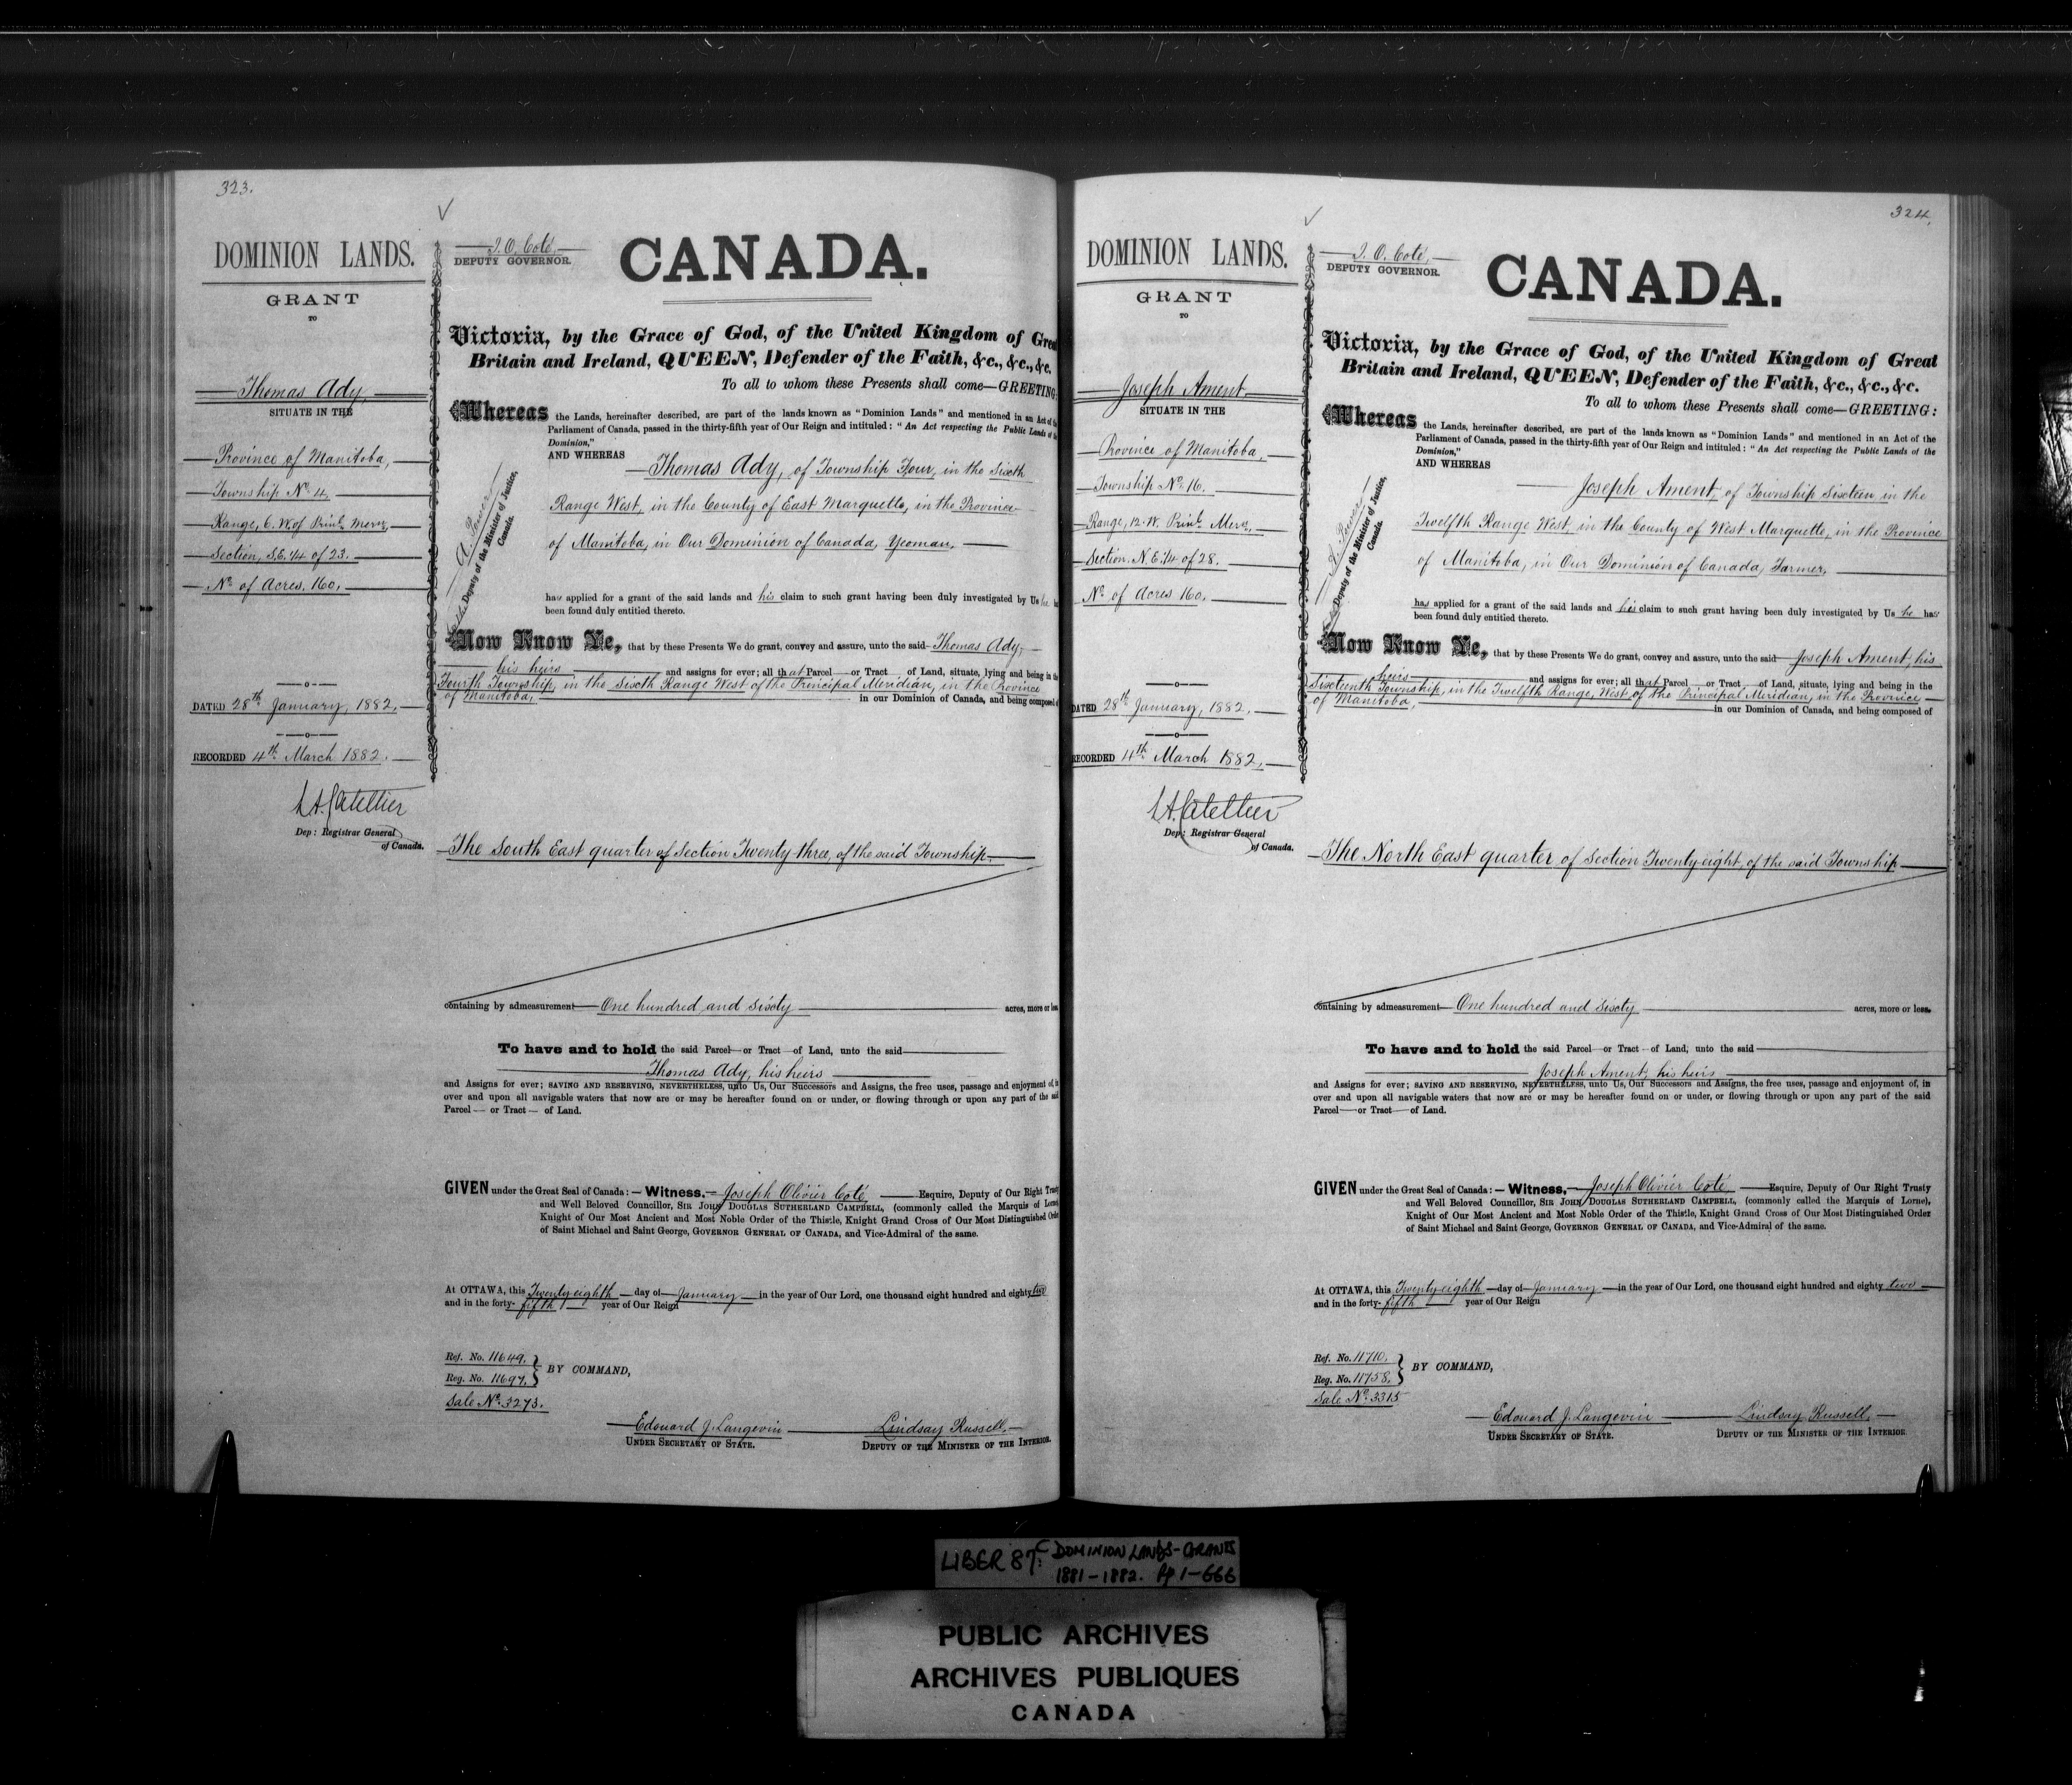 323.
DOMINION LANDS.
GRANT
TO
Thomas Ady,
SITUATE IN THE
Province of Manitoba,
Township No. 4,
Range, 6. W. of Prinl. Mern.,
Section, S.E. 1/4 of 23.
No. of Acres, 160,
DATED 28th January, 1882,
RECORDED 4th March 1882.
Dep: Registrar General
of Canada.
J. O. Coté,
DEPUTY GOVERNOR.
CANADA.
Victoria, by the Grace of God, of the United Kingdom of Great
Britain and Ireland, QUEEN, Defender of the Faith, &c., &c., &c.
To all to whom these Presents shall come—GREETING:
Whereas the Lands, hereinafter described, are part of the lands known as "Dominion Lands" and mentioned in an Act of the
Parliament of Canada, passed in the thirty-fifth year of Our Reign and intituled: "An Act respecting the Public Lands of the
Dominion,"
AND WHEREAS
Thomas Ady, of Township Four, in the Sixth
Range West, in the County of East Marquette, in the Province
of Manitoba, in Our Dominion of Canada, Yeoman,
A. Power
Deputy of the Minister of Justice,
Canada.
has applied for a grant of the said lands and his claim to such grant having been duly investigated by Us he
been found duly entitled thereto.
Now Know Ye, that by these Presents We do grant, convey and assure, unto the said Thomas Ady,
his heirs and assigns for ever; all that Parcel or Tract of Land, situate, lying and being in the
Fourth Township, in the Sixth Range West of the Principal Meridian, in the Province
of Manitoba, in our Dominion of Canada, and being composed of
The South East quarter of Section Twenty three, of the said Township
containing by admeasurement One hundred and Sixty acres, more or less.
To have and to hold the said Parcel or Tract of Land, unto the said
Thomas Ady, his heirs
and Assigns for ever; SAVING AND RESERVING, NEVERTHELESS, unto Us, Our Successors and Assigns, the free uses, passage and enjoyment of, in
over and upon all navigable waters that now are or may be hereafter found on or under, or flowing through or upon any part of the said
Parcel — or Tract — of Land.
GIVEN under the Great Seal of Canada: — Witness, Joseph Olivier Coté, Esquire, Deputy of Our Right Trusty
and Well Beloved Councillor, SIR JOHN DOUGLAS SUTHERLAND CAMPBELL, (commonly called the Marquis of Lorne),
Knight of Our Most Ancient and Most Noble Order of the Thistle, Knight Grand Cross of Our Most Distinguished Order
of Saint Michael and Saint George, GOVERNOR GENERAL OF CANADA, and Vice-Admiral of the same.
At OTTAWA, this Twenty eighth day of January in the year of Our Lord, one thousand eight hundred and eighty two
and in the forty-fifth year of Our Reign
Ref. No. 11649,
Reg. No. 11697,
BY COMMAND,
Sale No. 3273.
Edouard J. Langevin Lindsay Russell,
UNDER SECRETARY OF STATE. DEPUTY OF THE MINISTER OF THE INTERIOR.
324.
DOMINION LANDS.
GRANT
TO
Joseph Ament
SITUATE IN THE
Province of Manitoba,
Township No. 16.
Range, 12. W. Prinl. Mern.,
Section. N.E. 1/4 of 28.
No. of Acres 160,
DATED 28th January, 1882,
RECORDED 4th March 1882,
Dep: Registrar General
of Canada.
J. O. Coté,
DEPUTY GOVERNOR.
CANADA.
Victoria, by the Grace of God, of the United Kingdom of Great
Britain and Ireland, QUEEN, Defender of the Faith, &c., &c., &c.
To all to whom these Presents shall come—GREETING:
Whereas the Lands, hereinafter described, are part of the lands known as "Dominion Lands" and mentioned in an Act of the
Parliament of Canada, passed in the thirty-fifth year of Our Reign and intituled: "An Act respecting the Public Lands of the
Dominion,"
AND WHEREAS
Joseph Ament, of Township Sixteen in the
Twelfth Range West, in the County of West Marquette, in the Province
of Manitoba, in Our Dominion of Canada, Farmer,
A. Power
Deputy of the Minister of Justice,
Canada.
has applied for a grant of the said lands and his claim to such grant having been duly investigated by Us he has
been found duly entitled thereto.
Now Know Ye, that by these Presents We do grant, convey and assure, unto the said Joseph Ament, his
heirs and assigns for ever; all that Parcel or Tract of Land, situate, lying and being in the
Sixteenth Township, in the Twelfth Range, West of the Principal Meridian, in the Province
of Manitoba, in our Dominion of Canada, and being composed of
The North East quarter of Section Twenty eight, of the said Township
containing by admeasurement One hundred and Sixty acres, more or less.
To have and to hold the said Parcel or Tract of Land, unto the said
Joseph Ament, his heirs
and Assigns for ever; SAVING AND RESERVING, NEVERTHELESS, unto Us, Our Successors and Assigns, the free uses, passage and enjoyment of, in
over and upon all navigable waters that now are or may be hereafter found on or under, or flowing through or upon any part of the said
Parcel — or Tract — of Land.
GIVEN under the Great Seal of Canada: — Witness, Joseph Olivier Coté, Esquire, Deputy of Our Right Trusty
and Well Beloved Councillor, SIR JOHN DOUGLAS SUTHERLAND CAMPBELL, (commonly called the Marquis of Lorne),
Knight of Our Most Ancient and Most Noble Order of the Thistle, Knight Grand Cross of Our Most Distinguished Order
of Saint Michael and Saint George, GOVERNOR GENERAL OF CANADA, and Vice-Admiral of the same.
At OTTAWA, this Twenty eighth day of January in the year of Our Lord, one thousand eight hundred and eighty two
and in the forty-fifth year of Our Reign
Ref. No. 11710,
Reg. No. 11758,
BY COMMAND,
Sale No. 3315
Edouard J. Langevin Lindsay Russell,
UNDER SECRETARY OF STATE. DEPUTY OF THE MINISTER OF THE INTERIOR
LIBER 87C: DOMINION LANDS-GRANTS
1881-1882. Pg 1-666
PUBLIC ARCHIVES
ARCHIVES PUBLIQUES
CANADA